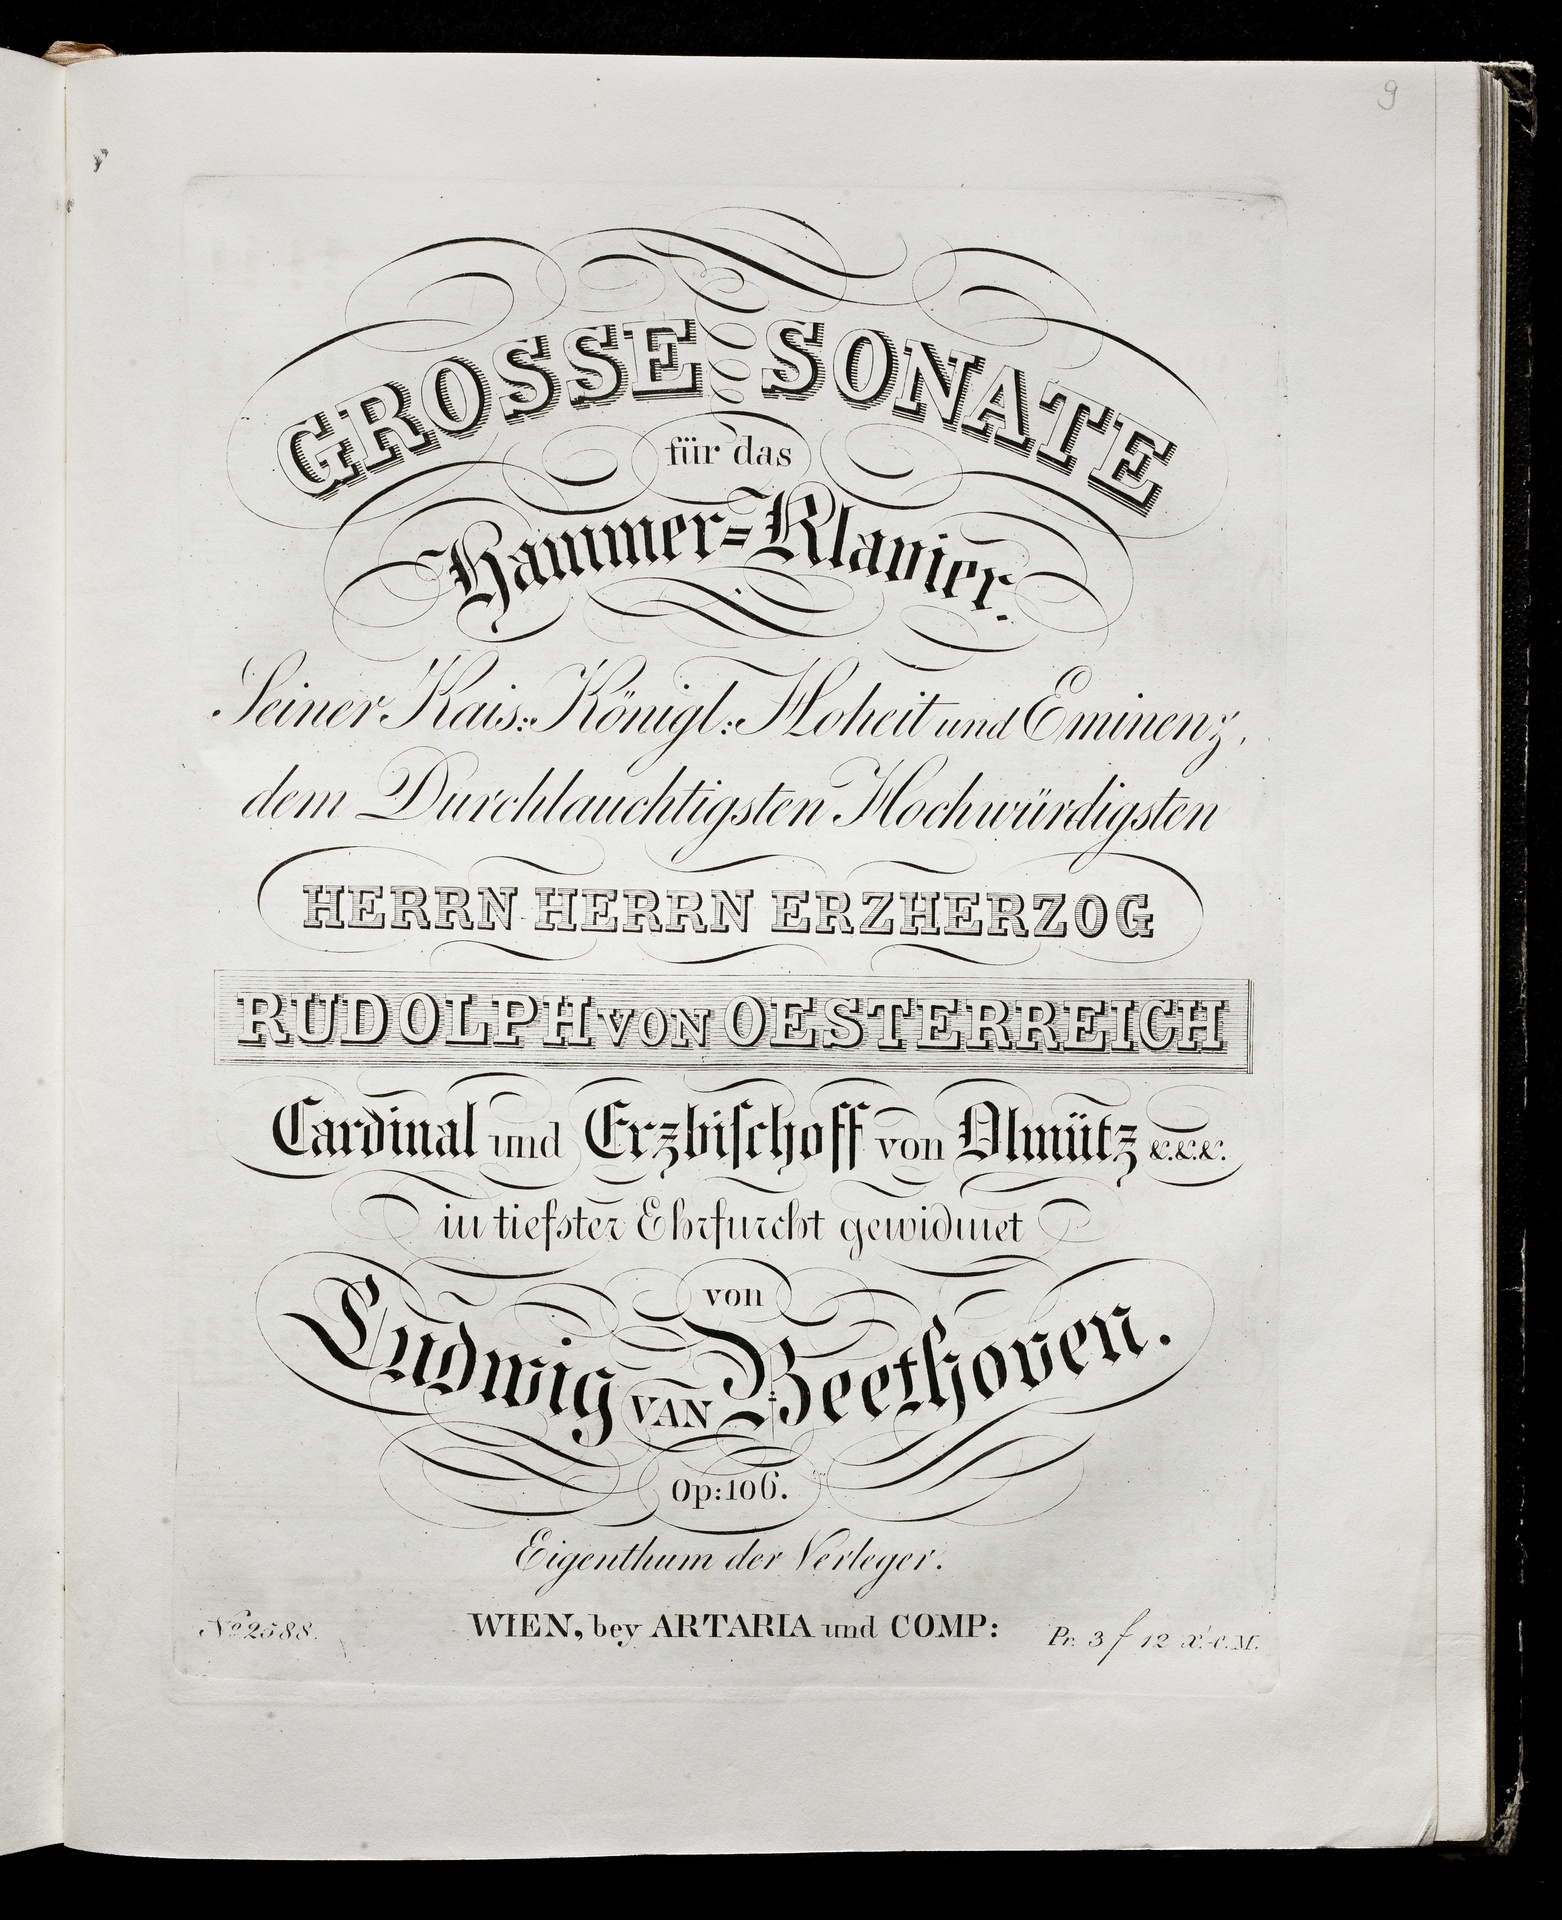 9
GROSSE SONATE
für das
Hammer=Klavier.
Seiner Kais: Königl: Hoheit und Eminenz,
dem Durchlauchtigsten Hochwürdigsten
HERRN HERRN ERZHERZOG
RUDOLPH VON OESTERREICH
Cardinal und Erzbischoff von Olmütz &.&.&.
in tiefster Ehrfurcht gewidmet
von
Ludwig VAN Beethoven.
Op:106.
Eigenthum der Verleger.
No 2588.
WIEN, bey ARTARIA und COMP:
Pr. 3 f 12 x'. C.M.